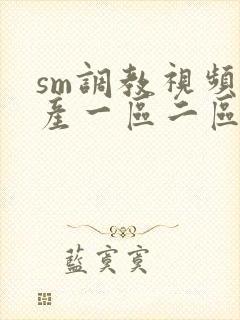 sm調教視頻
產一區二區
藍寞寞